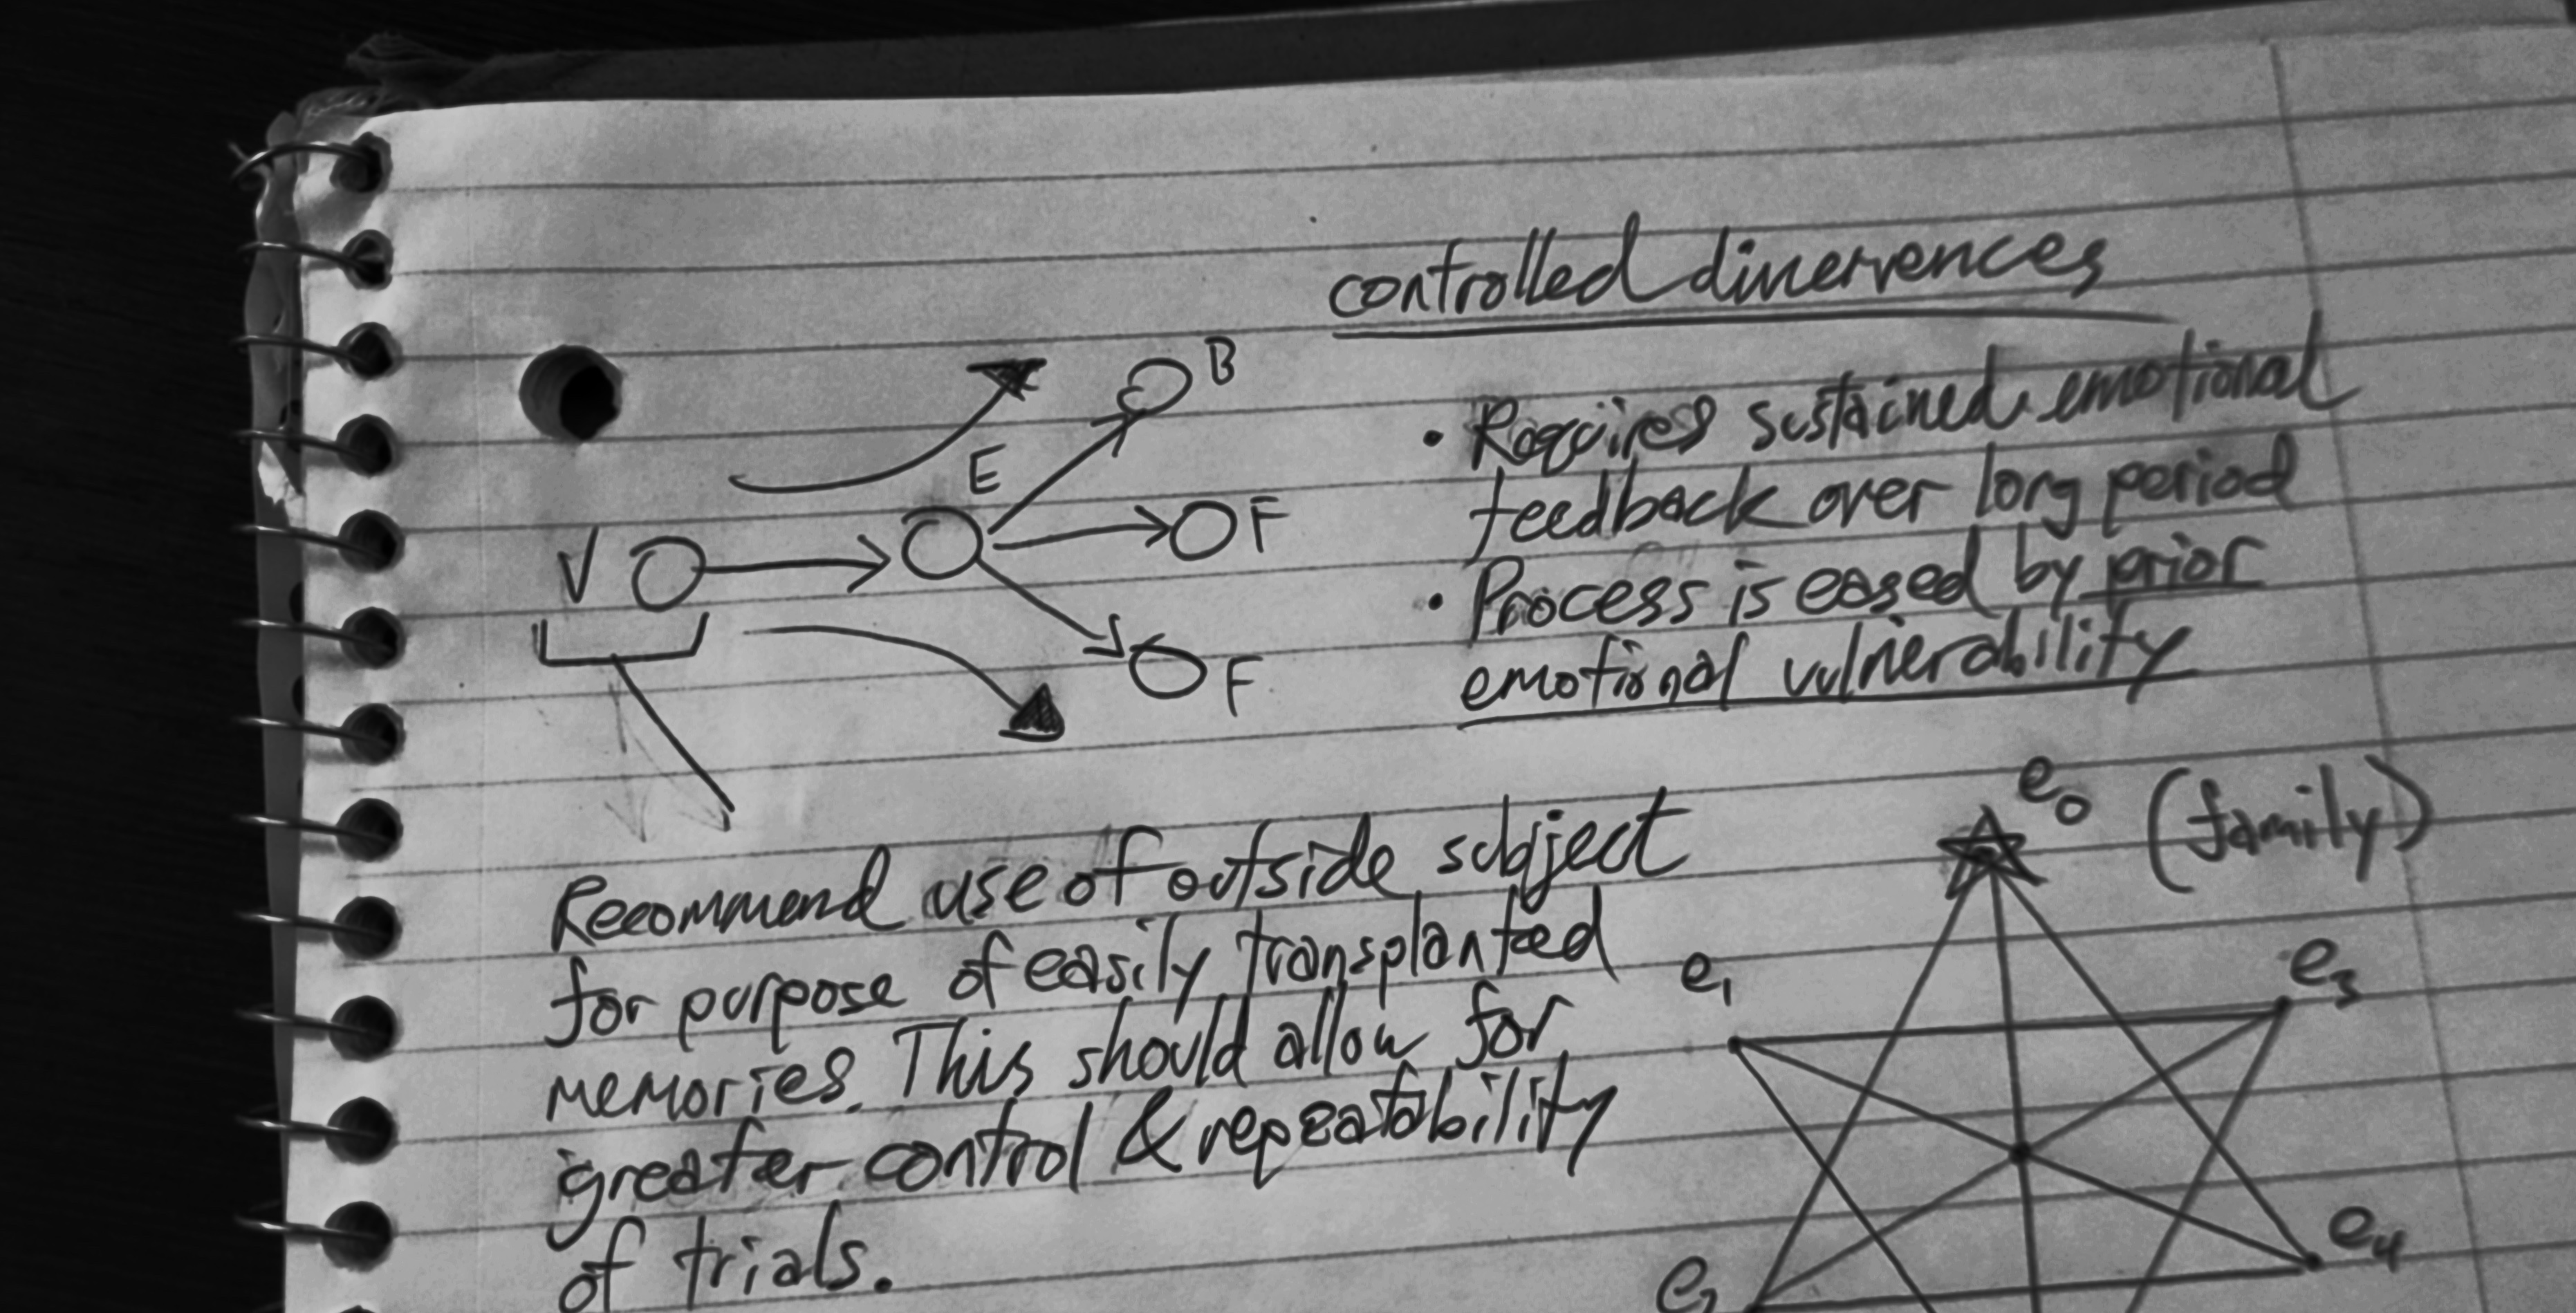 controlled dinervences
B
E
• Requires sustained emotional
feedback over long period
F
V
• Process is eased by prior
emotional vulnerability
F
e0 (family)
Recommend use of outside subject
for purpose of easily transplanted
memories. This should allow for
greater control & repeatability
of trials.
e1
e3
e4
e2